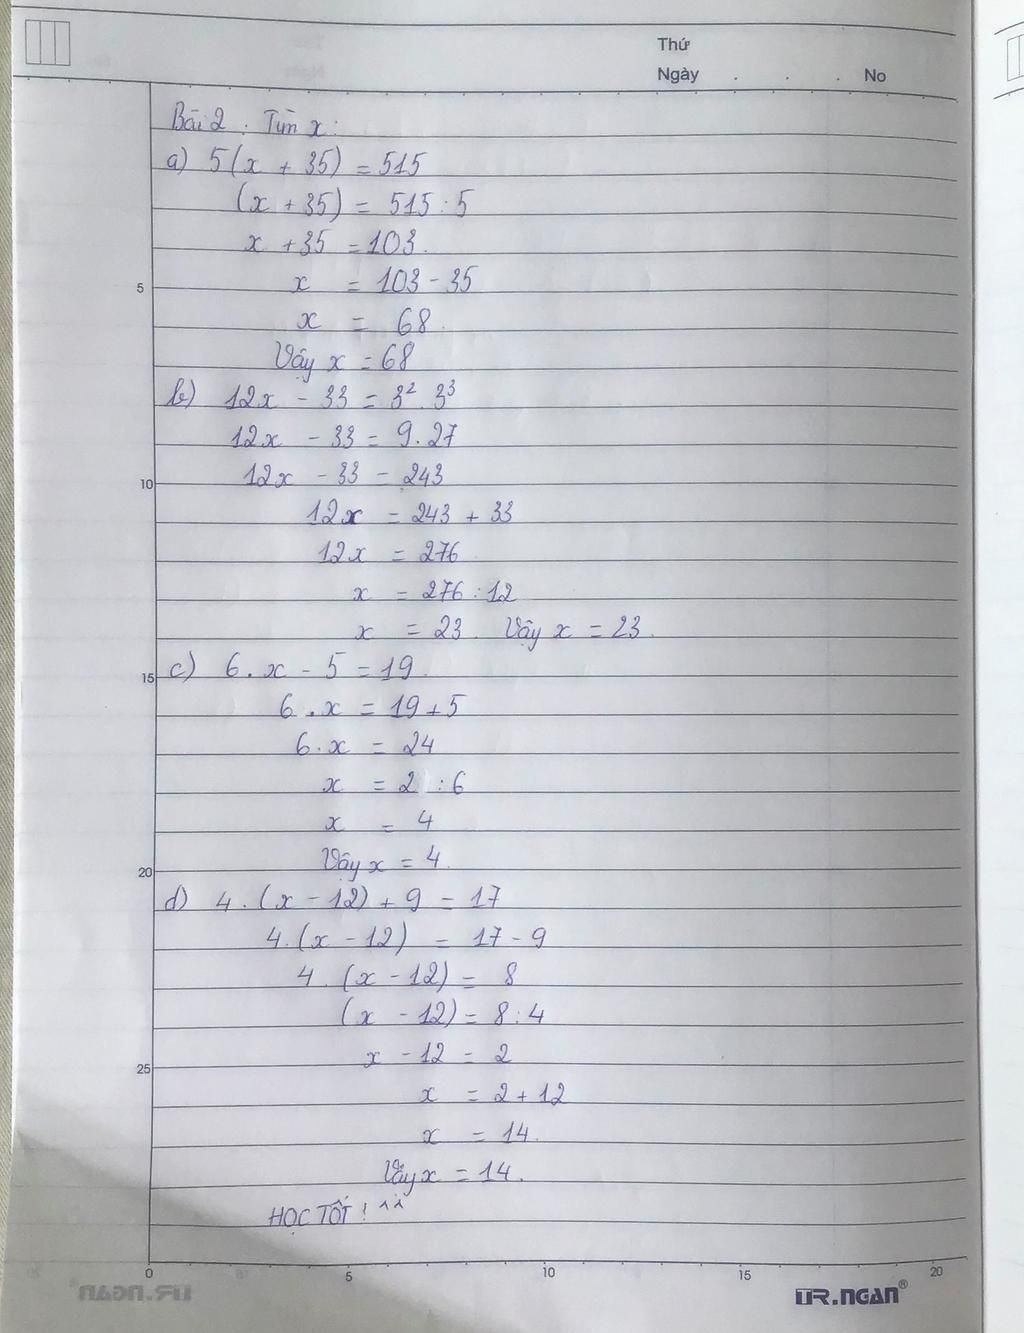 Thứ
Ngày . . . No
Bài 2 . Tìm x :
a) 5(x + 35) = 515
(x + 35) = 515 : 5
x + 35 = 103.
5 x = 103 - 35
x = 68
Vậy x = 68
b) 12x - 33 = 3² . 3³
12x - 33 = 9 . 27
10 12x - 33 = 243
12x = 243 + 33
12x = 276
x = 276 : 12
x = 23 . Vậy x = 23.
15 c) 6 . x - 5 = 19.
6 . x = 19 + 5
6 . x = 24
x = 2 : 6
x = 4
20 Vậy x = 4.
d) 4 . (x - 12) + 9 = 17
4 . (x - 12) = 17 - 9
4 . (x - 12) = 8
(x - 12) = 8 : 4
25 x - 12 = 2
x = 2 + 12
x = 14.
Vậy x = 14.
HỌC TỐT ! ^^
0 5 10 15 20
TR.NGAN®